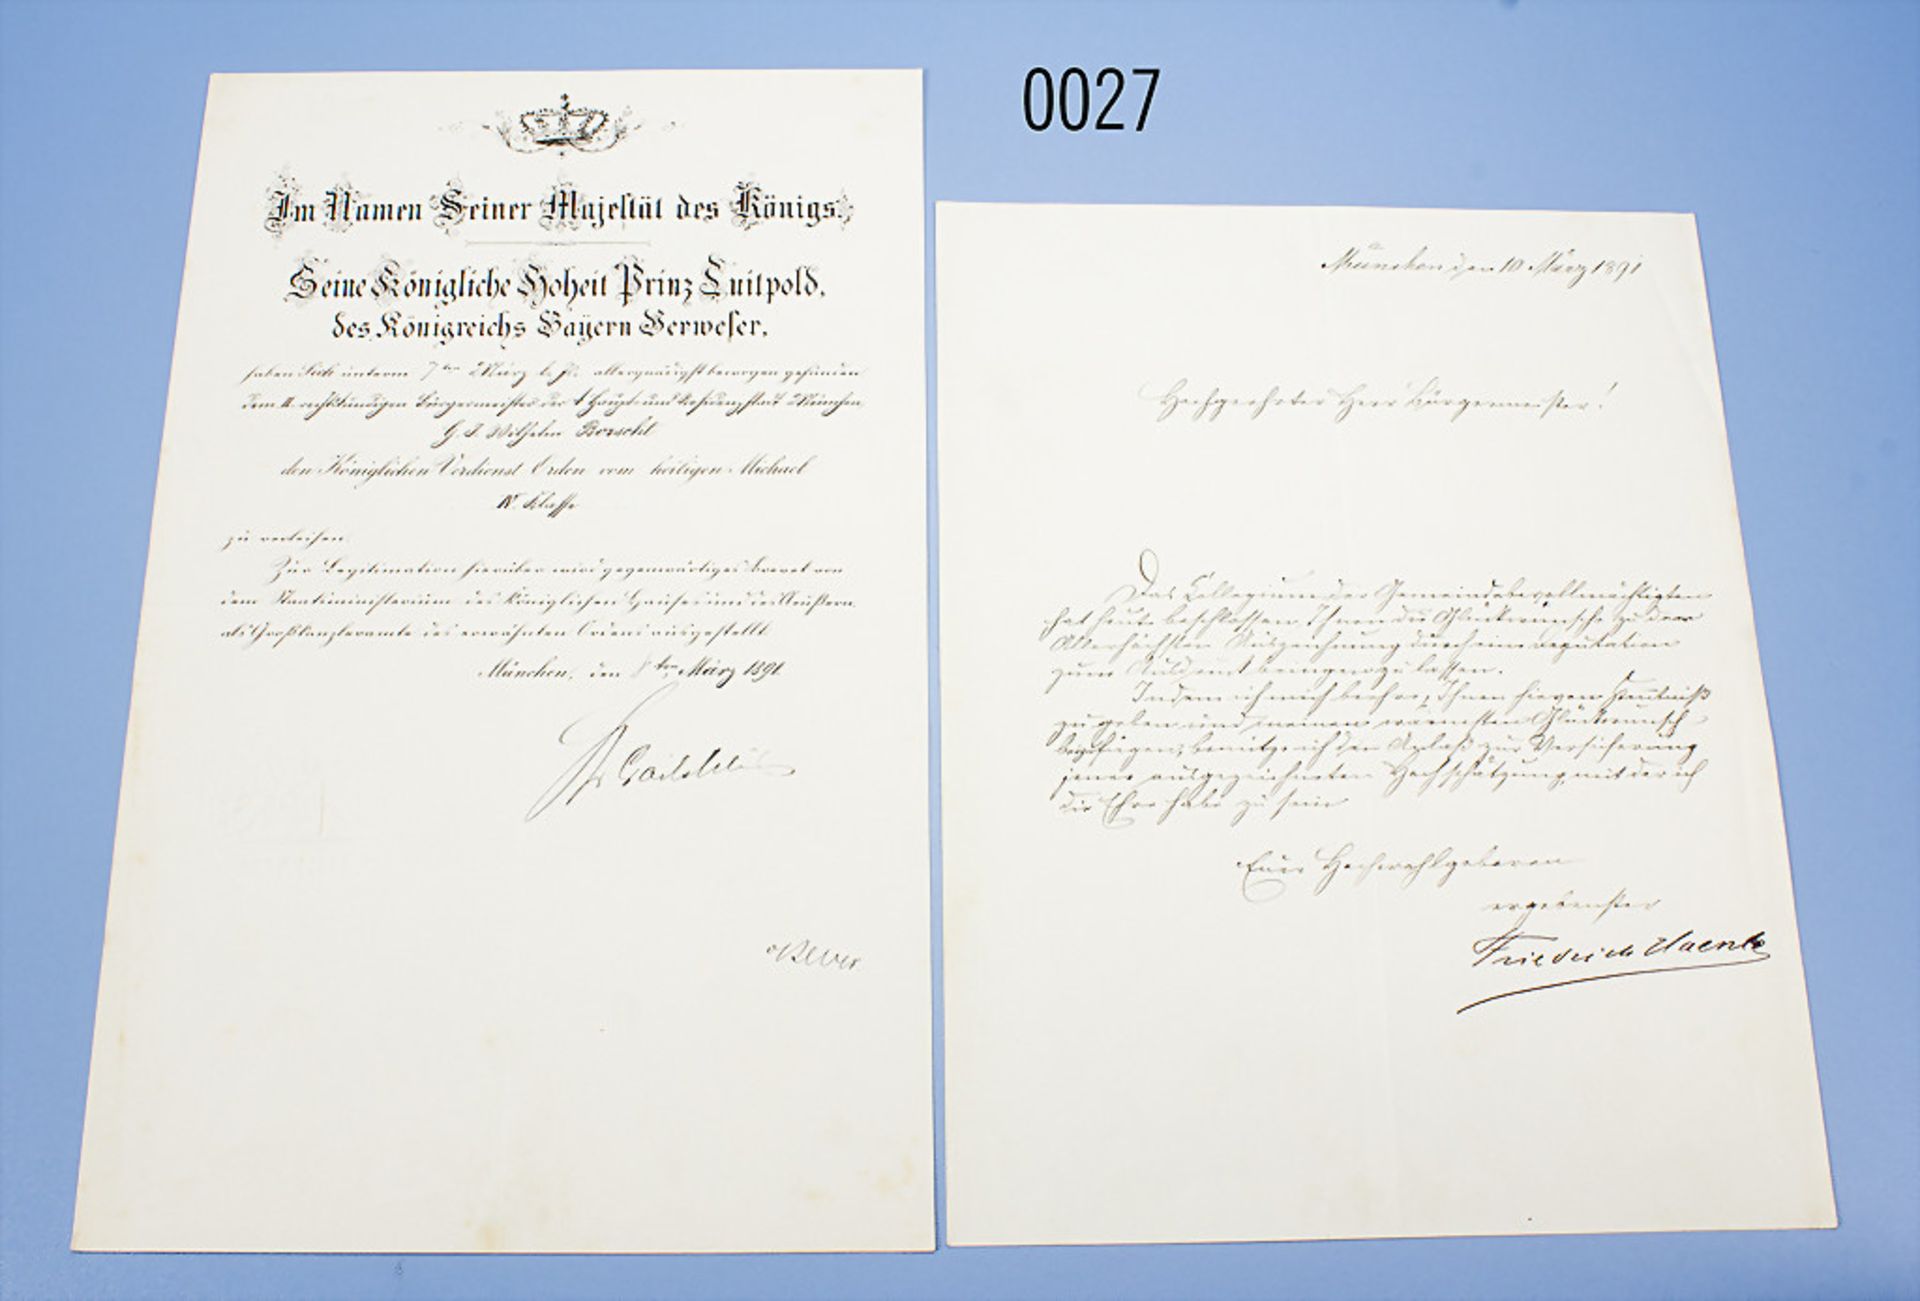 0027
Im Namen Seiner Majestät des Königs.
Seine Königliche Hoheit Prinz Luitpold,
des Königreichs Bayern Verweser,
haben Sich unterm 7ten März l. Js. allergnädigst bewogen gefunden
dem II. rechtskundigen Bürgermeister der k. Haupt- und Residenzstadt München,
Wilhelm Borscht
den Königlichen Verdienst Orden vom heiligen Michael
IV. Klasse
zu verleihen.
Zur Legitimation hierüber wird gegenwärtiges Brevet von
dem Staatsministerium des Königlichen Hauses und des Aeußern
als Großkanzleramte des erwähnten Ordens ausgestellt.
München, den 8ten März 1891.
München den 10 März 1891
Hochgeehrter Herr Bürgermeister!
Das Collegium der Gemeindebevollmächtigten
hat heute beschlossen Ihnen die Glückwünsche zu der
Allerhöchsten Auszeichnung durch eine Deputation
zum Ausdruck bringen zu lassen.
Indem ich mich beehre, Ihnen hievon Kenntniß
zu geben und meinen wärmsten Glückwunsch
beizufügen, benütze ich den Anlaß zur Versicherung
jener ausgezeichneten Hochschätzung, mit der ich
die Ehre habe zu sein
Euer Hochwohlgeboren
ergebenster
Friedrich Haenle